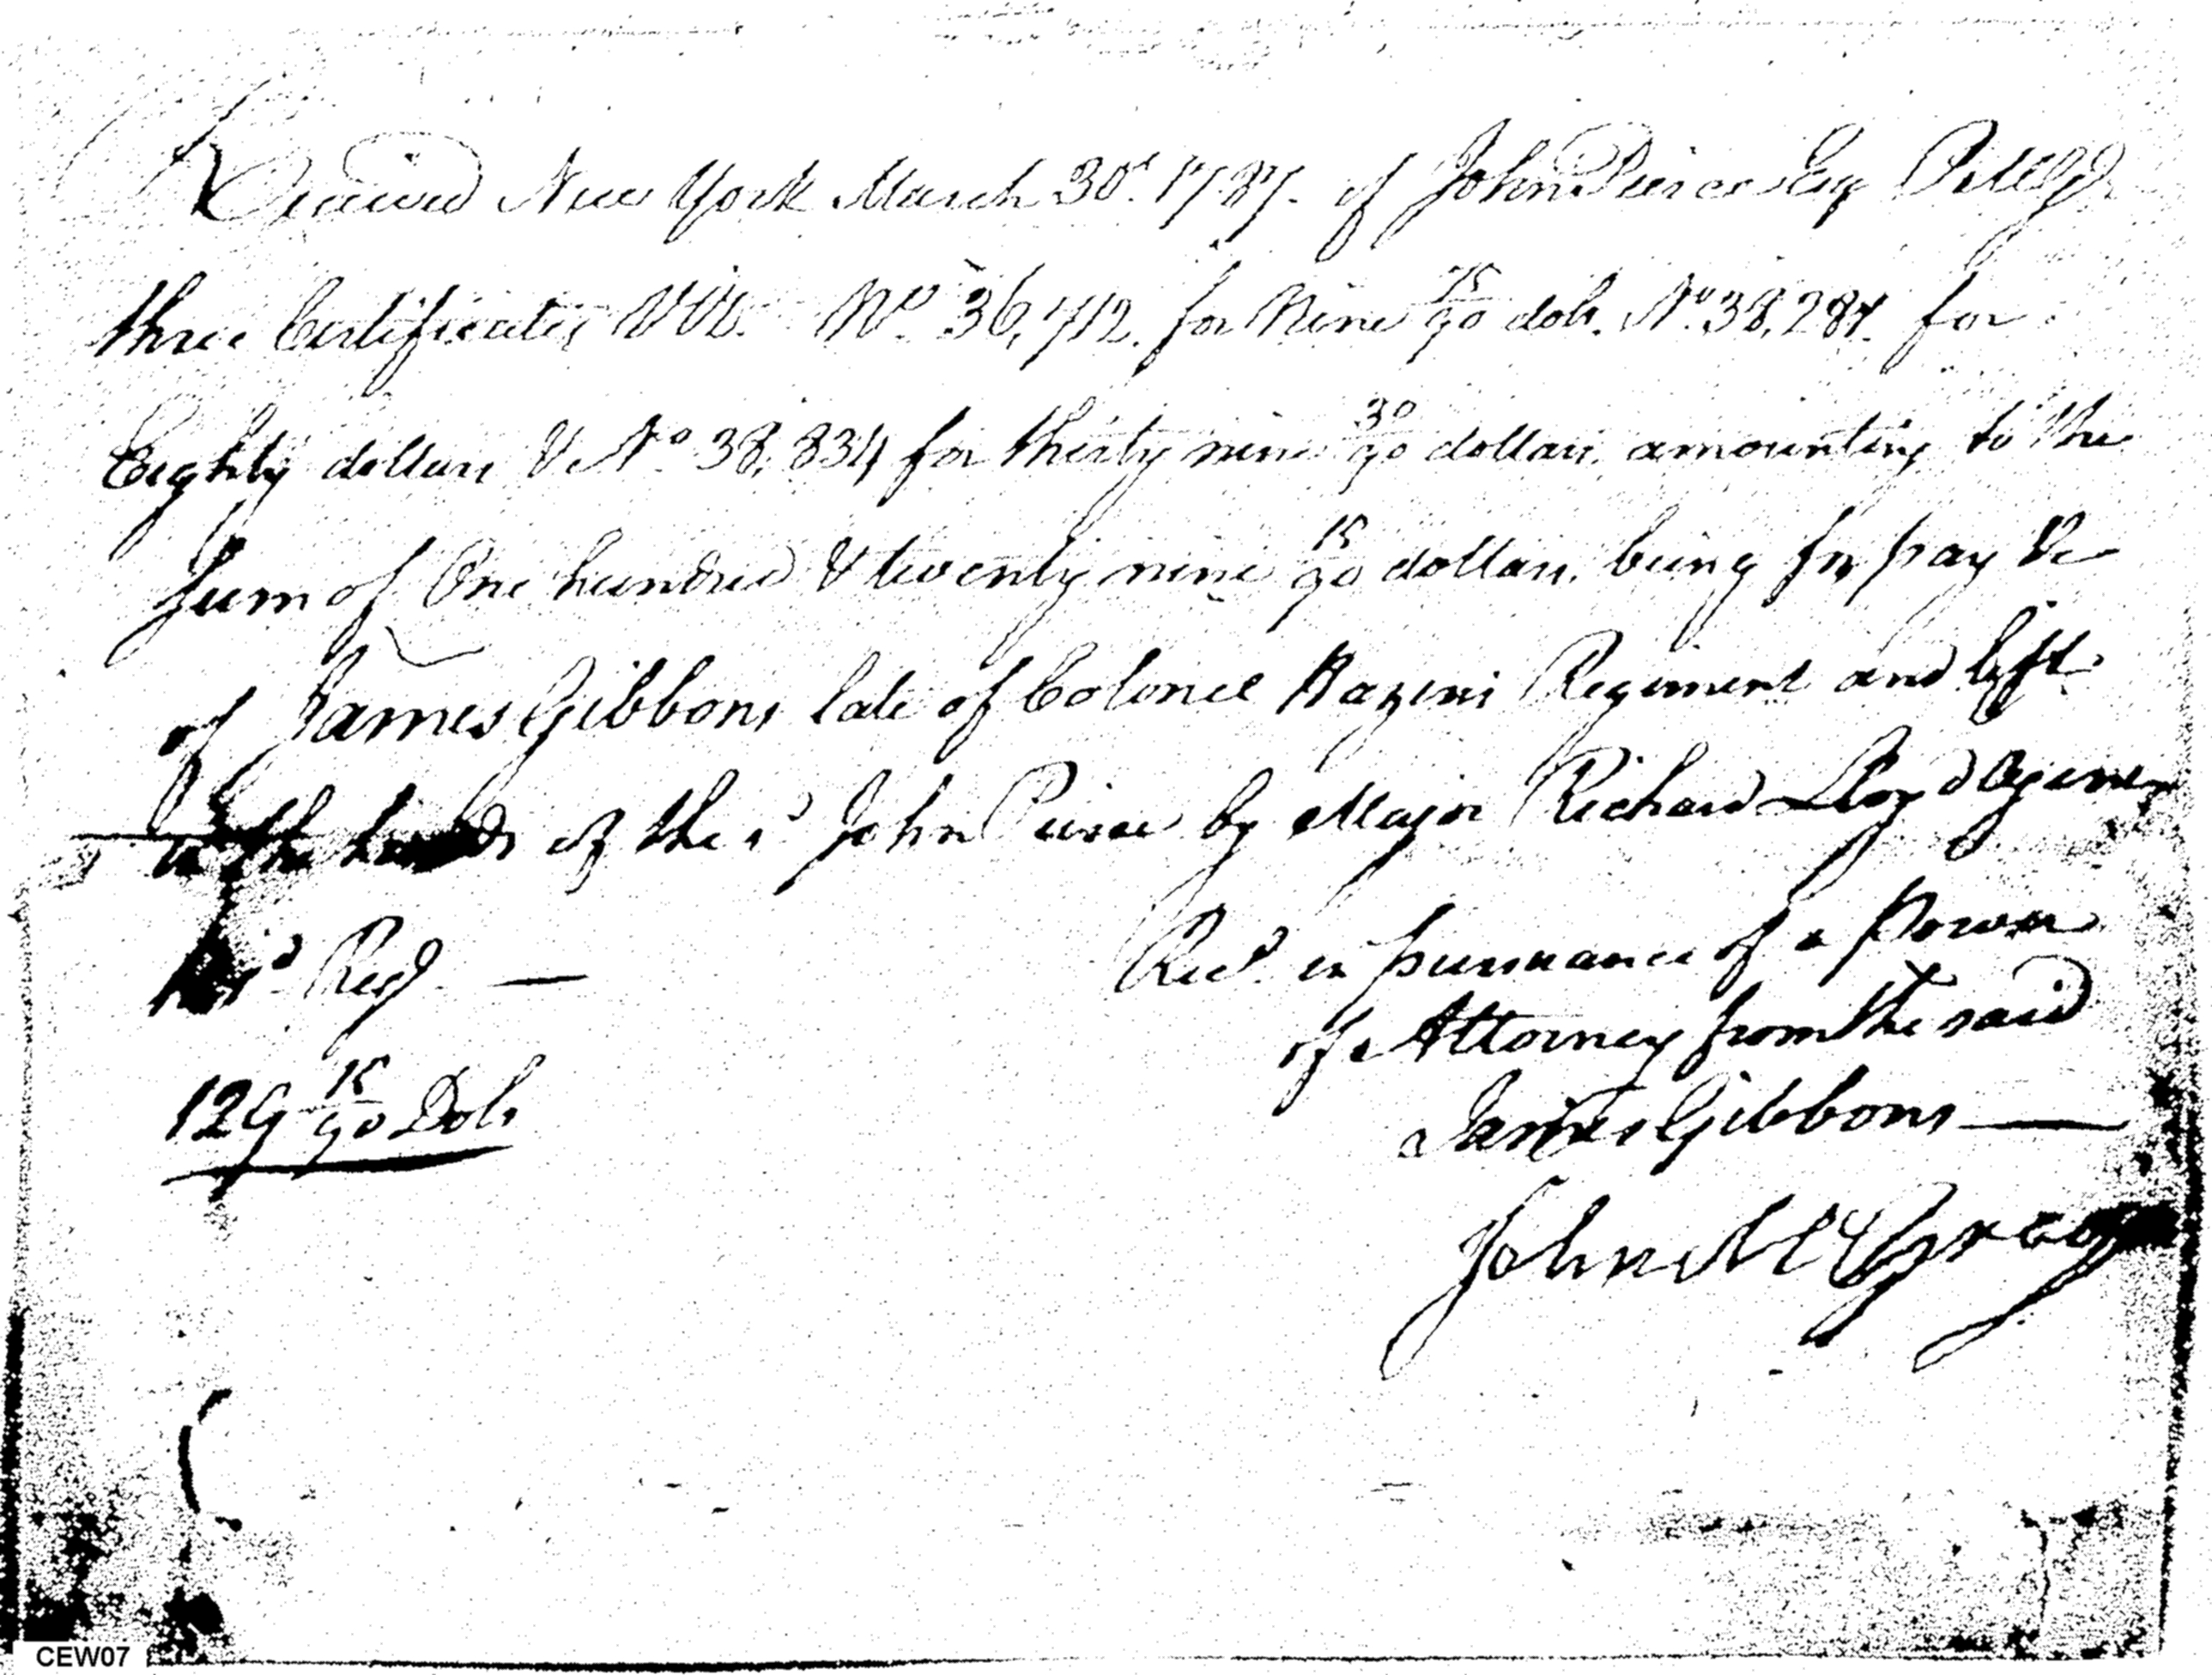 Received New York March 30th. 1787. of John Pierce Esq P.M.G.
three Certificates Viz. No. 36,712. for Nine 75/90 dols. No. 38,284. for
Eighty dollars & No. 38,834 for thirty nine 30/90 dollars. amounting to the
Sum of One hundred & twenty nine 15/90 dollars. being for pay &c
of James Gibbons late of Colonel Hazens Regiment and left
in the hands of the sd. John Pierce by Major Richard Lloyd Agent
sd. Regt. —
Recd. in pursuance of a Power
of Attorney from the said
James Gibbons —
129 15/90 Dols
John
CEW07